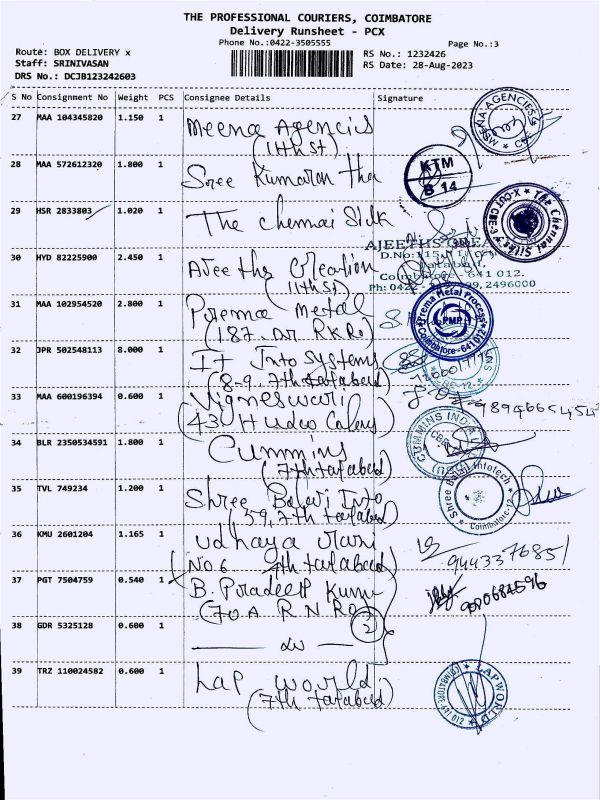 THE PROFESSIONAL COURIERS, COIMBATORE
Delivery Runsheet - PCX
Phone No.:0422-3505555
Page No.:3
Route: BOX DELIVERY x
RS No.: 1232426
Staff: SRINIVASAN
RS Date: 28-Aug-2023
DRS No.: DCJB123242603
S No Consignment No Weight PCS Consignee Details Signature
27 MAA 104345820 1.150 1 Meena Agencies
(11th st)
28 MAA 572612320 1.800 1 Sree Kumaran Tha
KTM
B 14
29 HSR 2833803 1.020 1 The Chennai Silk
The Chennai Silks
X-CUT CBE-3
30 HYD 82225900 2.450 1 Ajeeths Creation
(11th st)
AJEETHS CREA
D.No:115
Tatabad,
Coimbatore - 641 012.
Ph: 0422 2496000
31 MAA 102954520 2.800 1 Prema Metal
(187. Dr R K Ro)
Prema Metal Process
PMP
Coimbatore-641012
32 JPR 502548113 8.000 1 IT Info Systems
(8-9, 7th tatabad)
33 MAA 600196394 0.600 1 Vigneswari
(43 Hudco Colony)
34 BLR 2350534591 1.800 1 Cummins
(7th tatabad)
CUMMINS INDIA
35 TVL 749234 1.200 1 Shree Balaji Info
59, 7th tatabad)
Shree Balaji Infotech
Coimbatore-12
36 KMU 2601204 1.165 1 Udhaya rani
(No. 6 7th tatabad)
37 PGT 7504759 0.540 1 B. Pradeep Kumar
(70A R N Ro)
38 GDR 5325128 0.600 1
2
39 TRZ 110024582 0.600 1 Lap world
(7th tatabad)
LAP WORLD